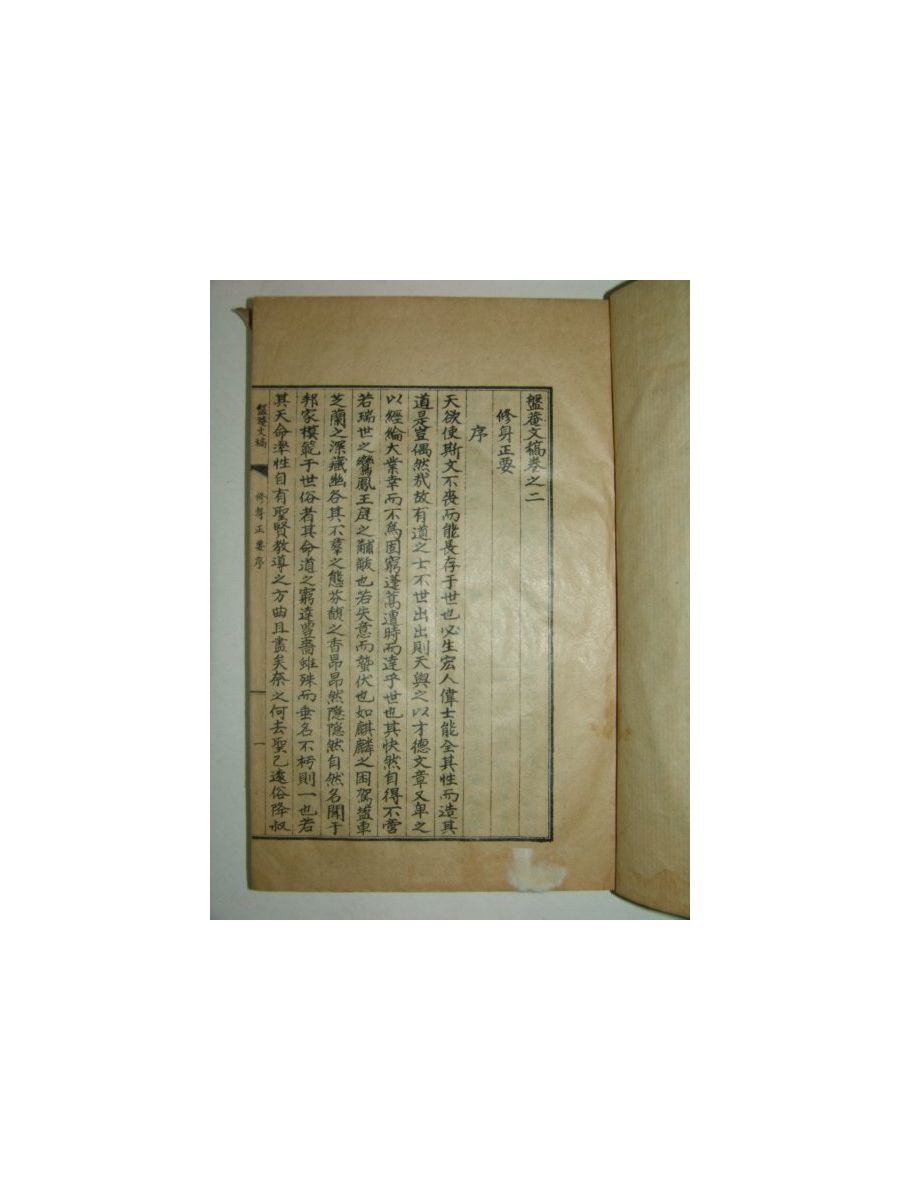 盤菴文稿卷之二
修身正要
序
天欲使斯文不喪而能長存于世也必生宏人偉士能全其性而造其
道是豈偶然哉故有道之士不世出出則天與之以才德文章又卑之
以經綸大業幸而不爲固窮蓬蒿遭時而達乎世也其快然自得不啻
若瑞世之鸞鳳王庭之黼黻也若失意而蟄伏也如麒麟之困駕鹽車
芝蘭之深藏幽谷其不羣之態芬馥之香昂昂然隱隱然自然名聞于
邦家模範于世俗者其命道之窮達豊嗇雖殊而垂名不朽則一也若
其天命率性自有聖賢教導之方曲且盡矣柰之何去聖已遠俗降叔
盤菴文稿
修身正要序
一